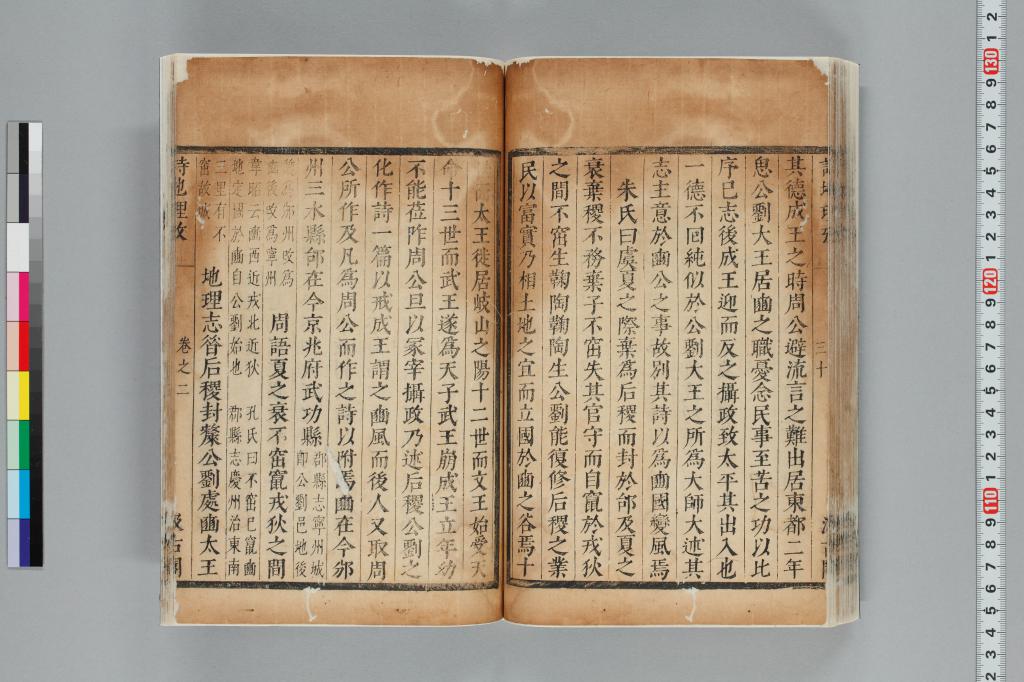 其德成王之時周公避流言之難出居東都二年
思公劉大王居豳之職憂念民事至苦之功以比
序己志後成王迎而反之攝政致太平其出入也
一德不回純似於公劉大王之所為大師大述其
志主意於豳公之事故别其詩以為豳國變風焉
朱氏曰虞夏之際棄為后稷而封於邰及夏之
衰棄稷不務棄子不窋失其官守而自竄於戎狄
之間不窋生鞠陶鞠陶生公劉能復修后稷之業
民以富實乃相土地之宜而立國於豳之谷焉十
太王徙居岐山之陽十二世而文王始受天
命十三世而武王遂為天子武王崩成王立年幼
不能莅阼周公旦以冢宰攝政乃述后稷公劉之
化作詩一篇以戒成王謂之豳風而後人又取周
公所作及凡為周公而作之詩以附焉豳在今邠
州三水縣邰在今京兆府武功縣
郡縣志寧州城
即公劉邑地後
州改為
改為寧州
周語夏之衰不窋竄戎狄之間
韋昭云豳西近戎北近狄
孔氏曰不窋已竄豳
地定國於豳自公劉始也
郡縣志慶州治東南
三里有不
窋故城
地理志昔后稷封斄公劉處豳太王
詩地理攷
卷之二
三十
汲古閣